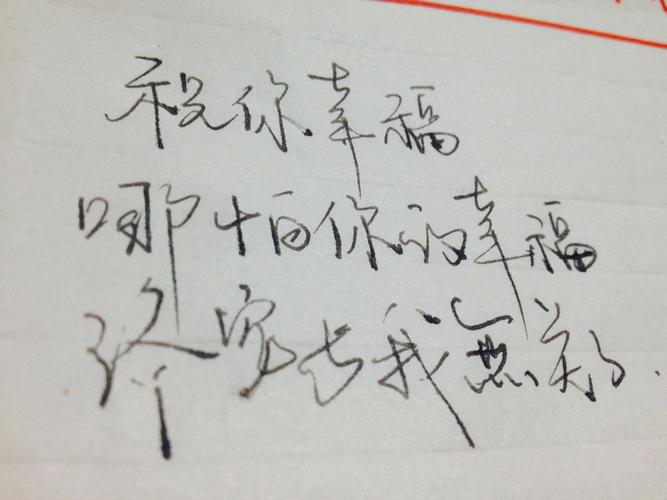 祝你幸福
哪怕你的幸福
终究与我無关.